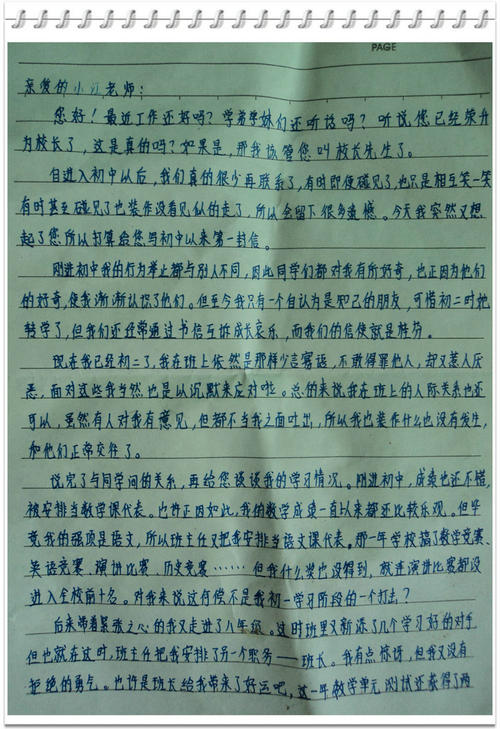 PAGE
亲爱的小江老师:
您好!最近工作还好吗?学弟学妹们还听话吗?听说您已经荣升
为校长了,这是真的吗?如果是,那我该管您叫校长先生了。
自进入初中以后,我们真的很少再联系了,有时即使碰见了,也只是相互笑一笑
有时甚至碰见了也装作没看见似的走了,所以会留下很多遗憾。今天我突然又想
起了您所以打算给您写初中以来第一封信。
刚进初中我的行为举止都与别人不同,因此同学们都对我有所好奇,也正因为他们
的好奇,使我渐渐认识了他们。但至今我只有一个自认为是知己的朋友,可惜初二时她
转学了,但我们还经常通过书信互诉成长哀乐,而我们的信使就是桂芬。
现在我已经初二了,我在班上依然是那样少言寡语,不敢得罪他人,却又惹人厌
恶,面对这些我当然也是以沉默来应对啦。总的来说我在班上的人际关系也还
可以,虽然有人对我有意见,但都不当我之面吐出,所以我也装作什么也没有发生,
和他们正常交往了。
说完了与同学间的关系,再给您谈谈我的学习情况。刚进初中,成绩也还不错,
被安排当数学课代表。也许正因如此,我的数学成绩一直以来都还比较乐观。但毕
竟我的强项是语文,所以班主任又把我安排当语文课代表。那一年学校搞了数学竞赛、
英语竞赛、演讲比赛、历史竞赛……但我什么奖也没得到,就连演讲比赛都没
进入全校前十名。对我来说这何偿不是我初一学习阶段的一个打击?
后来带着紧张之心的我又走进了八年级。这时班里又新添了几个学习好的对手
但也就在这时,班主任把我安排了另一个职务——班长。我有点惊讶,但我又没有
拒绝的勇气。也许是班长给我带来了好运吧,这一年数学单元测试还获得了两